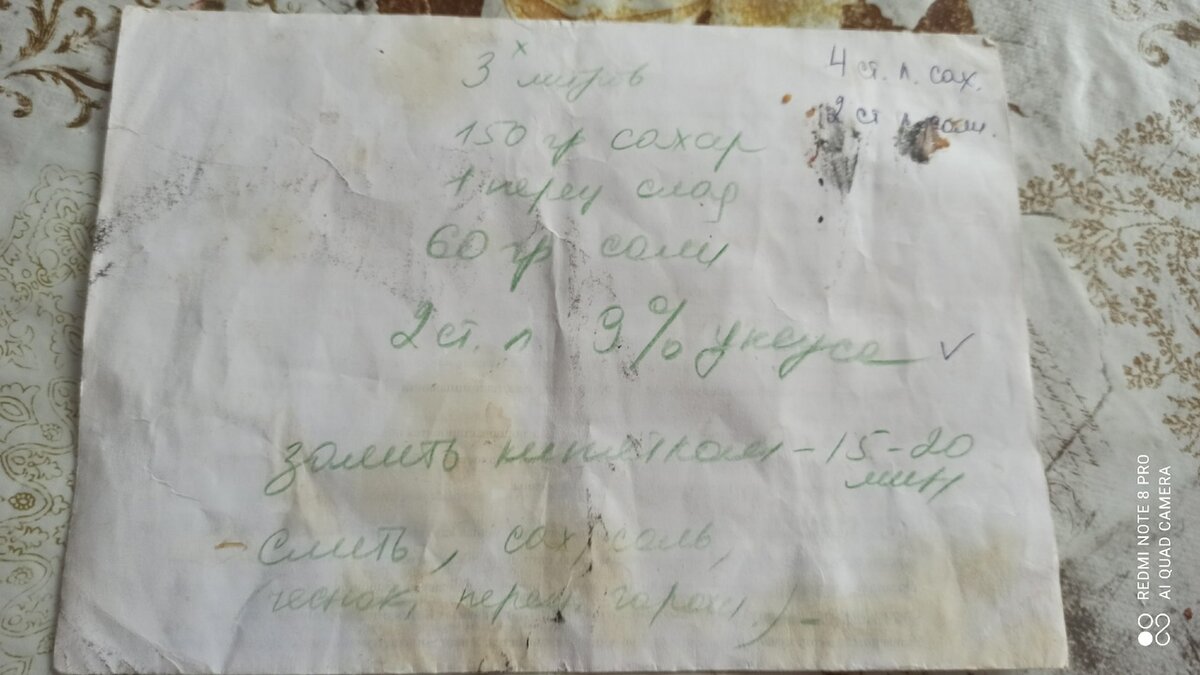 3х литров
4 ст. л. сах.
2 ст л соли.
150 гр сахар
1 перец слад
60 гр соли
2 ст. л 9% уксуса ✓
залить кипятком - 15-20
мин
- слить, сах, соль,
(чеснок, перец горош) -
REDMI NOTE 8 PRO
AI QUAD CAMERA